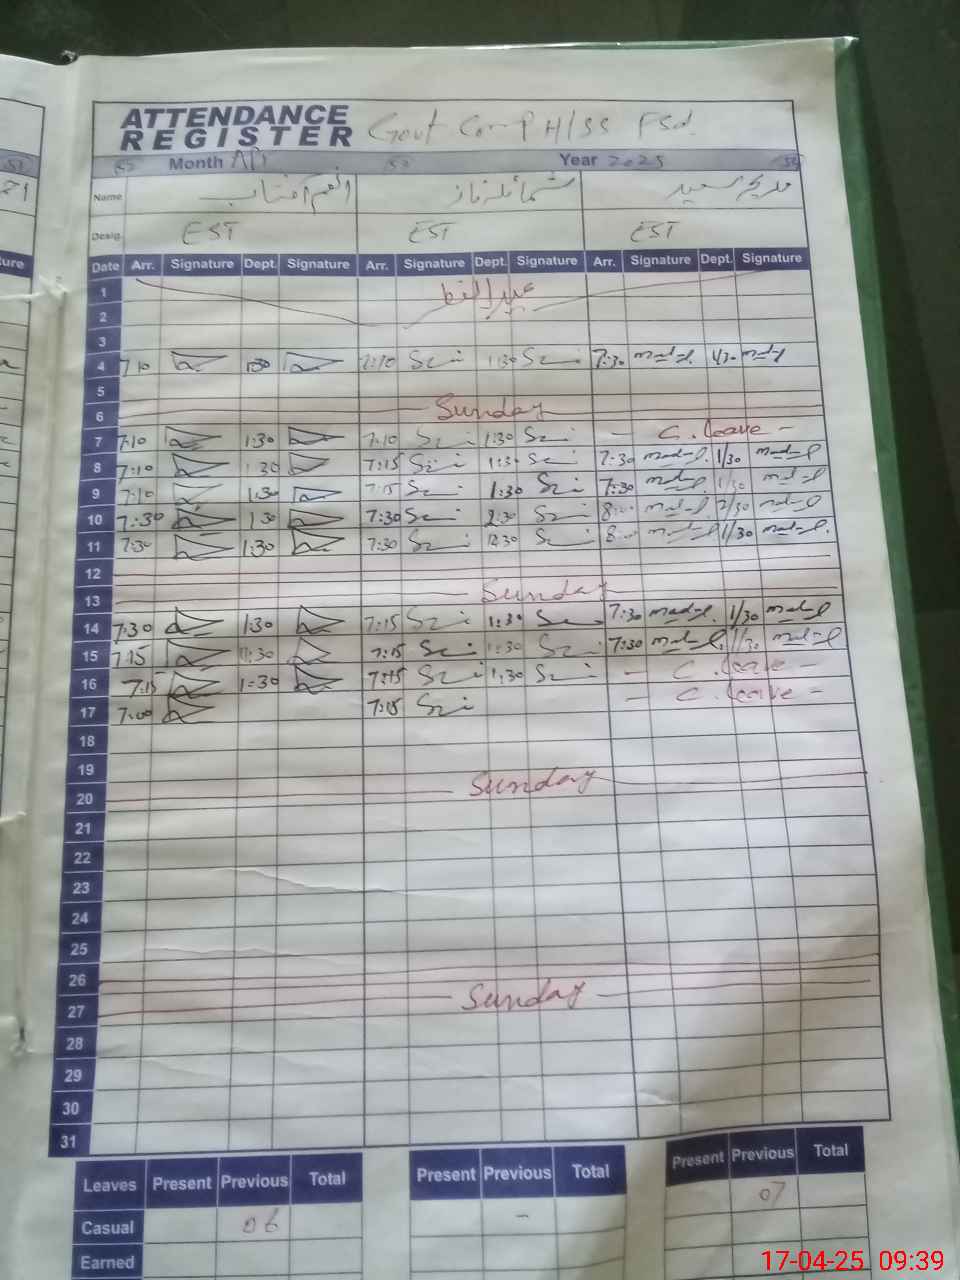 ATTENDANCE
REGISTER Govt Comp H/SS Fsd.
Month Year 2025
Name شمائلہ ناز مدیحہ سعید
Desig. EST EST EST
Date Arr. Signature Dept. Signature Arr. Signature Dept. Signature Arr. Signature Dept. Signature
1 عید الفطر
2
3
4 7:10 1:30 7:10 1:30 7:30
5
6 Sunday
7 7:10 1:30 7:10 1:30 - C. leave -
8 7:10 1:30 7:15 1:30 7:30 1/30
9 7:10 1:30 7:15 1:30 7:30 1/30
10 7:30 1:30 7:30 2:30 8:00 2/30
11 7:30 1:30 7:30 12:30 8:00 1/30
12
13 Sunday
14 7:30 1:30 7:15 1:30 7:30 1/30
15 7:15 1:30 7:15 1:30 7:30 1/30
16 7:15 1:30 7:15 1:30 - C. leave -
17 7:00 7:15 - C. leave -
18
19
20 Sunday
21
22
23
24
25
26
27 Sunday
28
29
30
31
Leaves Present Previous Total Present Previous Total Present Previous Total
Casual 06 - 07
Earned
17-04-25 09:39